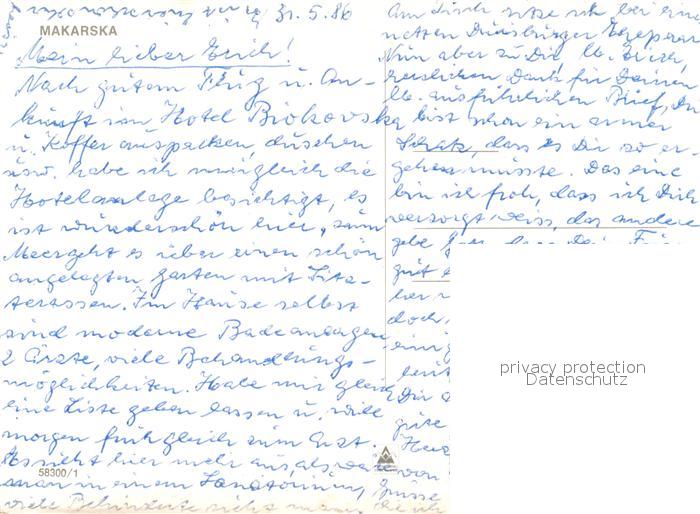 31.5.86
MAKARSKA
Mein lieber Erich!
Nach gutem Flug u. An-
kunft im Hotel Biokovska
u. Koffer auspacken duschen
usw. habe ich mir gleich die
Hotelanlage besichtigt, es
ist wunderschön hier, zum
Meer geht es über einen schön
angelegten Garten mit Sitz-
terassen. Im Hause selbst
sind moderne Badeanlagen
2 Ärzte, viele Behandlungs-
möglichkeiten. Habe mir gleich
eine Liste geben lassen u. will
morgen früh gleich zum Arzt.
Es sieht hier mehr aus, als wäre
58300/1
man in einem Sanatorium,
viele Behinderte sieht man
Am Tisch sitze ich bei einem
netten Duisburger Ehepaar
Nun aber zu Dir, lb. Erich,
herzlichen Dank für Deinen
lb. ausführlichen Brief, Du
bist schon ein armer
Schatz, dass es Dir so er-
gehen müsste. Das eine
bin ich froh, dass ich Dich
versorgt weiss, das andere
gebe
gut
doch,
Dir
gute
Herz
von
Grüsse
privacy protection
Datenschutz